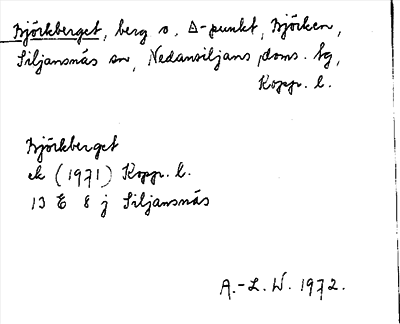 Björkberget, berg o. Δ-punkt, Björken,
Siljansnäs sn, Nedansiljans doms. tg,
Kopp. l.
Björkberget
ek (1971) Kopp. l.
13 E 8 j Siljansnäs
A.-L. W. 1972.